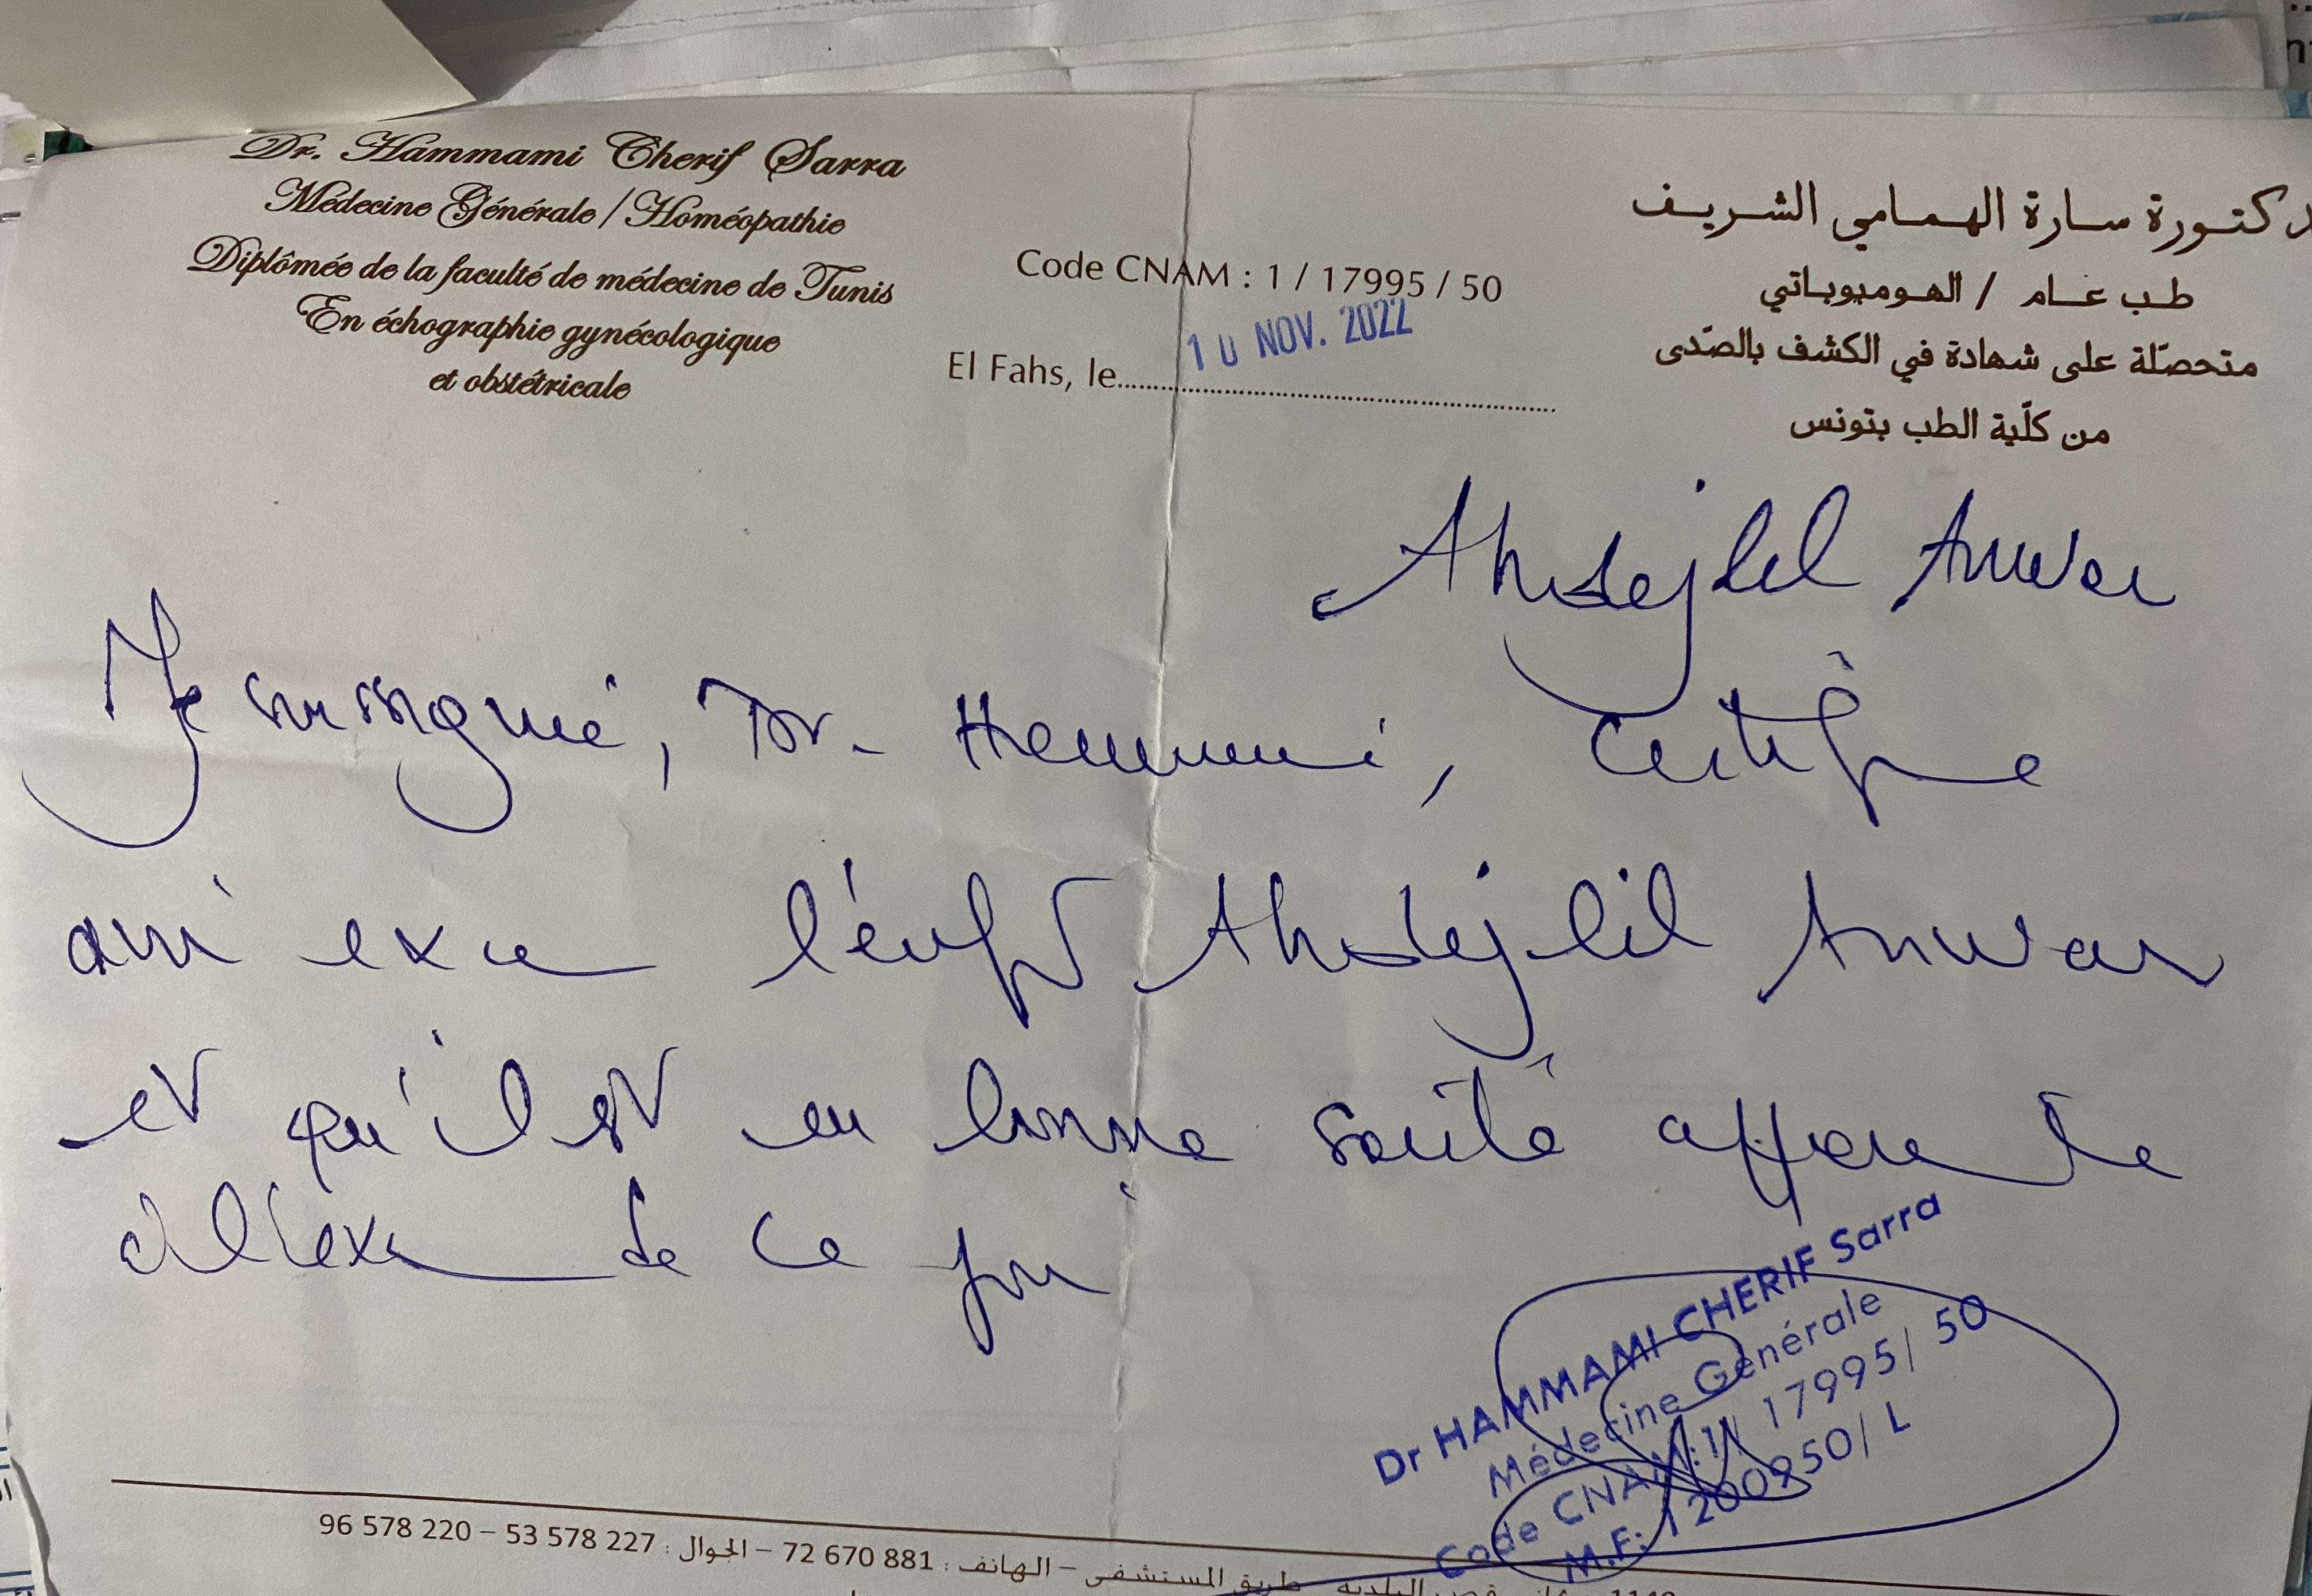 Dr. Hammami Cherif Sarra
Médecine Générale / Homéopathie
Diplômée de la faculté de médecine de Tunis
En échographie gynécologique
et obstétricale
Code CNAM : 1 / 17995 / 50
El Fahs, le 10 NOV. 2022
دكتورة سارة الهمامي الشريف
طب عام / الهوميوباتي
متحصّلة على شهادة في الكشف بالصّدى
من كلّية الطب بتونس
Abdejlil Anwar
Je soussigné, Dr. Hammami, certifie
avoir exa l'enft Abdejlil Anwar
et qu'il est en bonne santé apparente
à l'exa de ce jour
Dr HAMMAMI CHERIF Sarra
Médecine Générale
Code CNAM: 1/ 17995/ 50
M.F: /L
طريق المستشفى – الهاتف : 72 670 881 – الجوال : 53 578 227 – 96 578 220